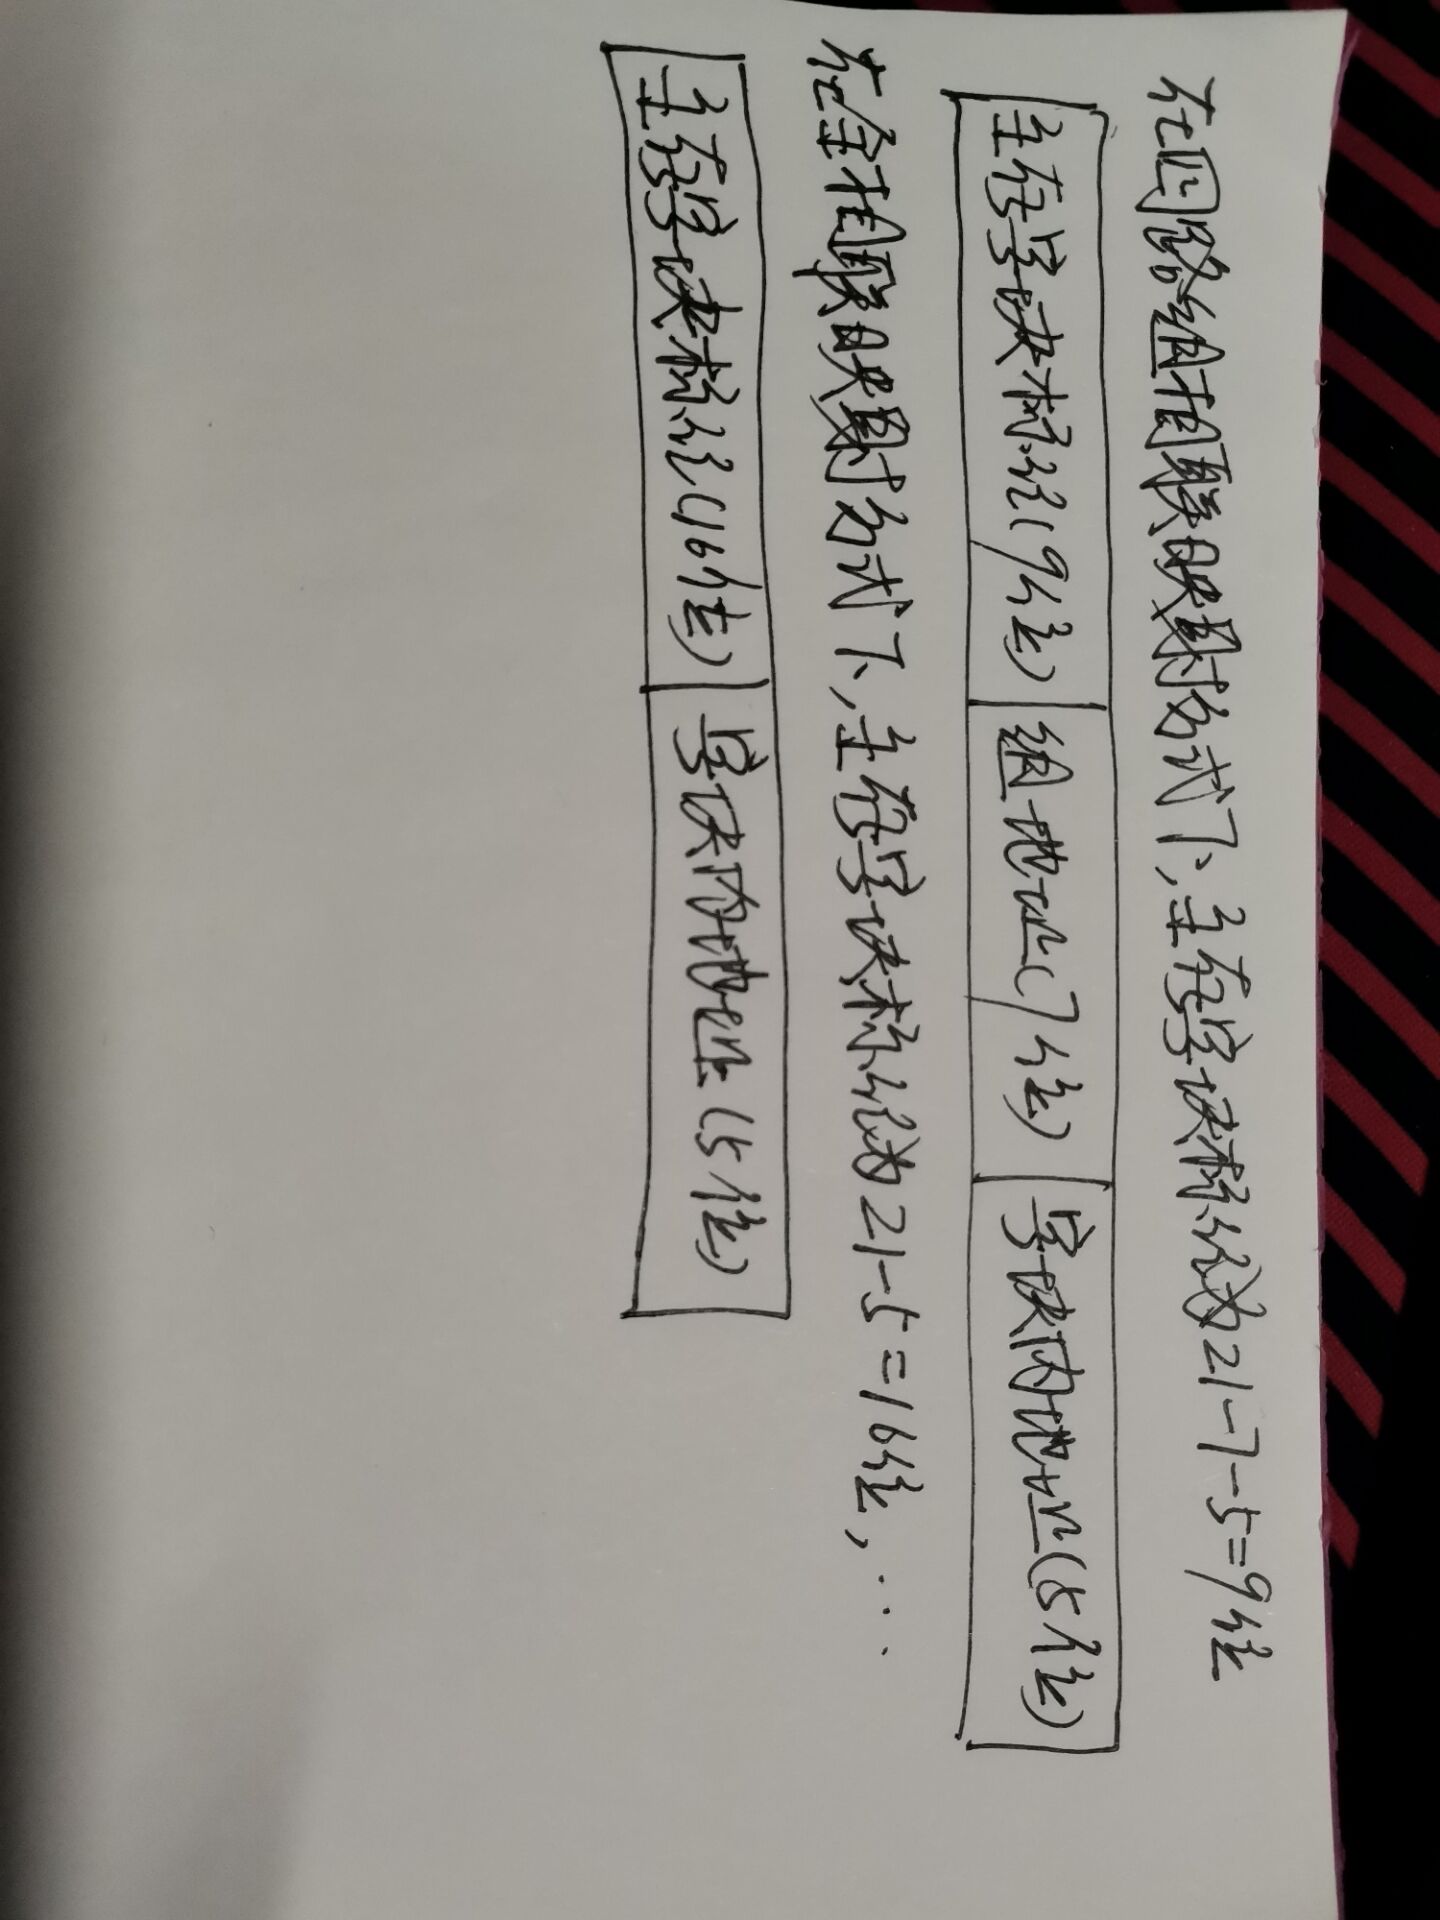 在四路组相联映射方式下,主存字块标记为21-7-5=9位
主存字块标记(9位) 组地址(7位) 字块内地址(5位)
在全相联映射方式下,主存字块标记为21-5=16位,...
主存字块标记(16位) 字块内地址(5位)